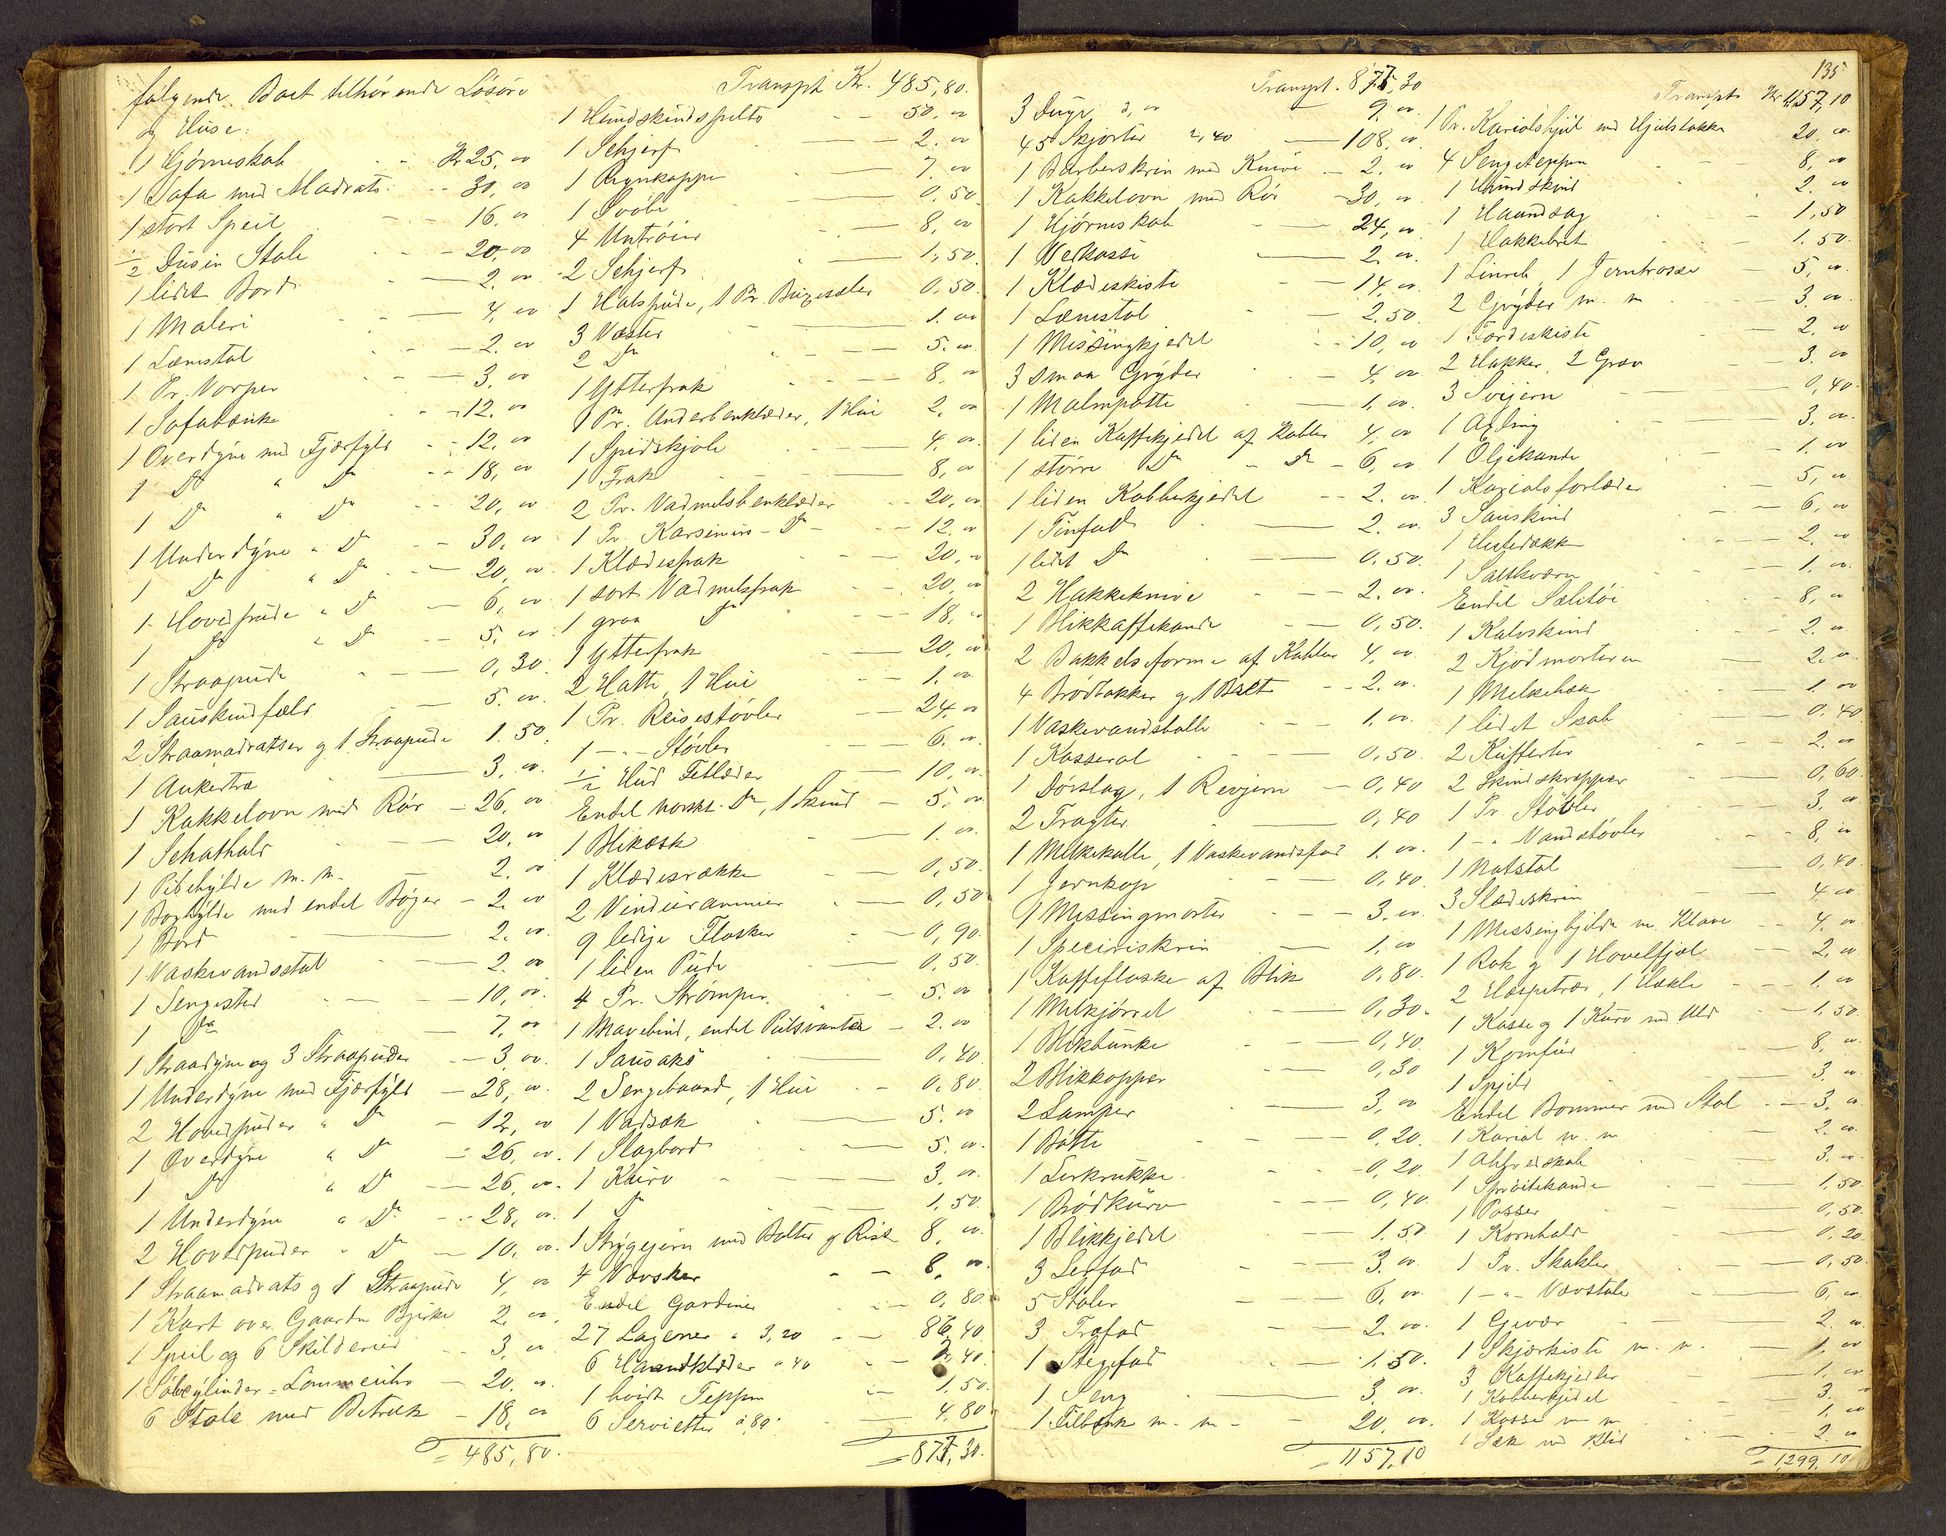 følgende Boet tilhørende Løsøre
i Huse:
1 Hjørneskab Kr 25, 00
1 Sofa med Madrats 30, 00
1 stort Speil 16, 00
1/2 Dusin Stole 20, 00
1 lidet Bord 2, 00
1 Maleri 4, 00
1 Lænestol 2, 00
1 Pr. Vorper 3, 00
1 Sofabænk 12, 00
1 Overdyne med Fjærfyld 12, 00
1 Do " Do 18, 00
1 Do " Do 20, 00
1 Underdyne " Do 30, 00
1 Do " Do 20, 00
1 Hovedpude " Do 6, 00
1 Do " Do 5, 00
1 Straapude 0, 30
1 Sauskindfæld 5, 00
2 Straamadratser og 1 Straapude 1. 50
1 Ankertræ 3, 00
1 Kakkelovn med Rør 26, 00
1 Schathald 20, 00
1 Pibehylde m. m. 2, 00
1 Boghylde med endel Bøger 2, 00
1 Bord 2, 00
1 Vaskevandsstol 2, 00
1 Sengested 10, 00
1 Do 7, 00
1 Straadyne og 3 Straapuder 3, 00
1 Underdyne med Fjærfyld 28, 00
2 Hovedpuder " Do 12, 00
1 Overdyne " Do 26, 00
1 Do " Do 26, 00
1 Underdyne " Do 28, 00
2 Hovedpuder " Do 10, 00
1 Straamadrats og 1 Straapude 4, 00
1 Kart over Gaarden Bjerke 2, 00
1 Speil og 6 Skilderier 3, 00
1 Sølvcylinder-Lommeuhr 20, 00
6 Stole med Betræk 18, 00
= 485, 80.
Transpt Kr. 485,80.
1 Hundskindspelts 50, 00
1 Schjerf 2, 00
1 Reynkappe 7, 00
1 Svøbe 0, 50
4 Untrøier 8, 00
2 Schjerf 1, 50
1 Halspude, 1 Pr. Buxeseler 0, 50
3 Væster 1. 00
2 Do 5. 00
1 Ytterfrak 8, 00
1 Pr. Underbenklæder, 1 Hue 2, 00
1 Spidskjole 4, 00
1 Frak 8, 00
2 Pr. Vadmelsbenklæder 20, 00
1 Pr. Karsimirs-Do 12, 00
1 Klædesfrak 20, 00
1 sort Vadmelsfrak 20, 00
1 graa Do 18, 00
1 Ytterfrak 20, 00
2 Hatte, 1 Hue 1. 00
1 Pr. Reisestøvler 24, 00
1 - " - Støvler 6. 00
1/2 Hud Fedlæder 10, 00
Endel norskt Do, 1 Skind 5, 00
1 Blikæsk 1. 00
1 Klædesrække 0, 50
2 Vinduerammer 0, 50
9 ledige Flasker 0, 90
1 liden Pude 0, 50
4 Pr. Strømper 5. 00
1 Mavebind, endel Pulsvanter 2. 00
1 Sausaks 0, 40
2 Sengebaand, 1 Hue 0, 80
1 Vadsæk 5. 00
1 Slagbord 5. 00
1 Kurv 3. 00
1 Do 1, 50
1 Strygejern med Bolter og Rist 8, 00
4 Vævsker 8, 00
Endel Gardiner 0, 80
27 Lagener a 3,20 86, 40
6 Haandklæder a 40 2, 40
1 hvidt Teppe 1, 50
6 Servietter a, 80 4, 80
= 877, 30.
Transpt. 877, 30
3 Duge 3, 00 9, 00
45 Skjorter 2, 40 108, 00
1 Barberskrin med Knive 2, 00
1 Kakkelovn med Rør 30, 00
1 Hjørneskab 24, 00
1 Vedkasse 2, 00
1 Klædeskiste 14, 00
1 Lænestol 2, 50
1 Missingkjedel 10, 00
3 smaa Gryder 4, 00
1 Malmpotte 1. 00
1 liden Kaffekjedel af Kobber 4, 00
1 større Do - Do 6, 00
1 liden Kobberkjedel 2. 00
1 Tinfad 2. 00
1 lidet Do 0, 50
2 Hakkeknive 2. 00
1 Blikkaffekande 0, 50
2 Bakkelsforme af Kobber 4, 00
4 Brødbakker og 1 Bræt 2. 00
1 Vaskevandsballe 1. 00
1 Kasserol 0, 50
1 Dørslag, 1 Revjern 0, 40
2 Tragter 0, 40
1 Melkekolle, 1 Vaskevandsfad 1. 00
1 Jernkop 0, 40
1 Missingmorter 3. 00
1 Specieskrin 1. 00
1 Kaffeflaske af Blik 0, 80
1 Melkjørrel 0, 30
1 Blikbunke 0, 40
2 Blikkopper 0, 30
2 Lamper 3, 00
1 Bøtte 0, 20
1 Lerkrukke 0, 20
1 Brødkurv 0, 40
1 Blikkjedel 1. 50
3 Lerfad 3. 00
5 Stoler 6. 00
3 Trafad 2. 00
1 Stegefad 1. 50
1 Seng 3. 00
1 Filbænk m. m 20, 00
= 1157, 10
135
Transpt Kr 1157, 10
1 Pr. Kariolshjul med Hjulstokke 20, 00
4 Sengetepper 8, 00
1 Hundskind 2. 00
1 Haandsag 1, 50
1 Hakkebræt 1. 50
1 Linreb, 1 Jerntrosse 5, 00
2 Gryder m. m 3. 00
1 Færdeskiste 2. 00
2 Hakker, 2 Grev 3. 00
3 Svijern 0, 40
1 Agling 3. 00
1 Oljekande 1. 00
1 Kariolsforlæder 5, 00
3 Sauskind 6, 00
1 Hestedækken 2. 00
1 Saltkværn 1. 00
Endel Seletøi 8, 00
1 Kalvskind 2. 00
2 Kjødmorteren 2. 00
1 Melkebøk 1. 00
1 lidet Skab 0, 40
2 Kufferter 2. 00
2 Skindskrapper 0, 60
1 Pr. Støvler 3, 00
1 - " Vandstøvler 8, 00
1 Natstol 0, 40
3 Slædeskrin 4, 00
1 Missingbjelde m. Klave 4, 00
1 Rok og 1 Høvelfjæl 2, 00
2 Haspetrær, 1 Hekle 1, 00
1 Kasse og 1 Kurv med Uld 1. 50
1 Komfur 8. 00
1 Spjeld 3. 00
Endel Bommer med Stol 3, 00
1 Kariol m. m 2. 00
1 Skab 3. 00
1 Sprøitekande 1, 50
1 Passer 0, 50
1 Kornhald 0, 20
1 Pr. Skakler 0, 50
1 - " - Vævstole 6, 00
1 Gevær 2. 00
1 Skjærkiste m. m. 1. 00
3 Kaffekjedler 1. 00
1 Kobberkjedel 3. 00
1 Kasse m m 1. 00
1 Sæk m Klid 2. 00
= 1,299, 10